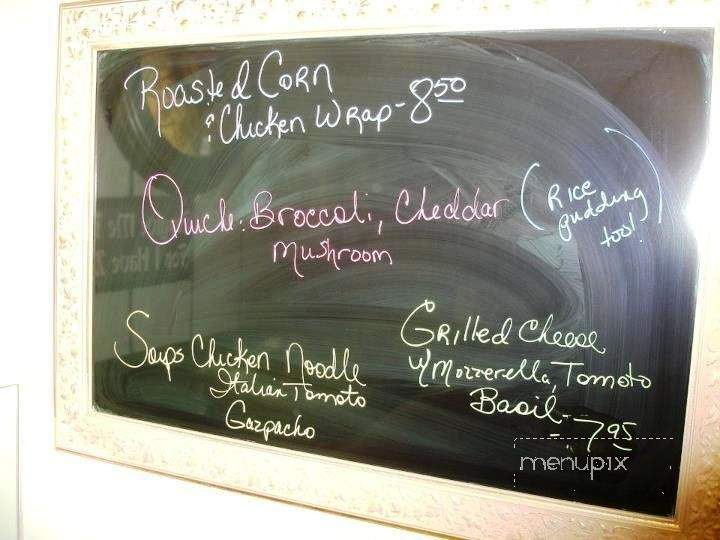 Roasted Corn
& Chicken Wrap - 8.50
Quiche: Broccoli, Cheddar
Mushroom
(Rice
pudding
too!)
Soups Chicken Noodle
Italian Tomato
Gazpacho
Grilled Cheese
w/ Mozzerella, Tomato
Basil -
- 7.95
menupix